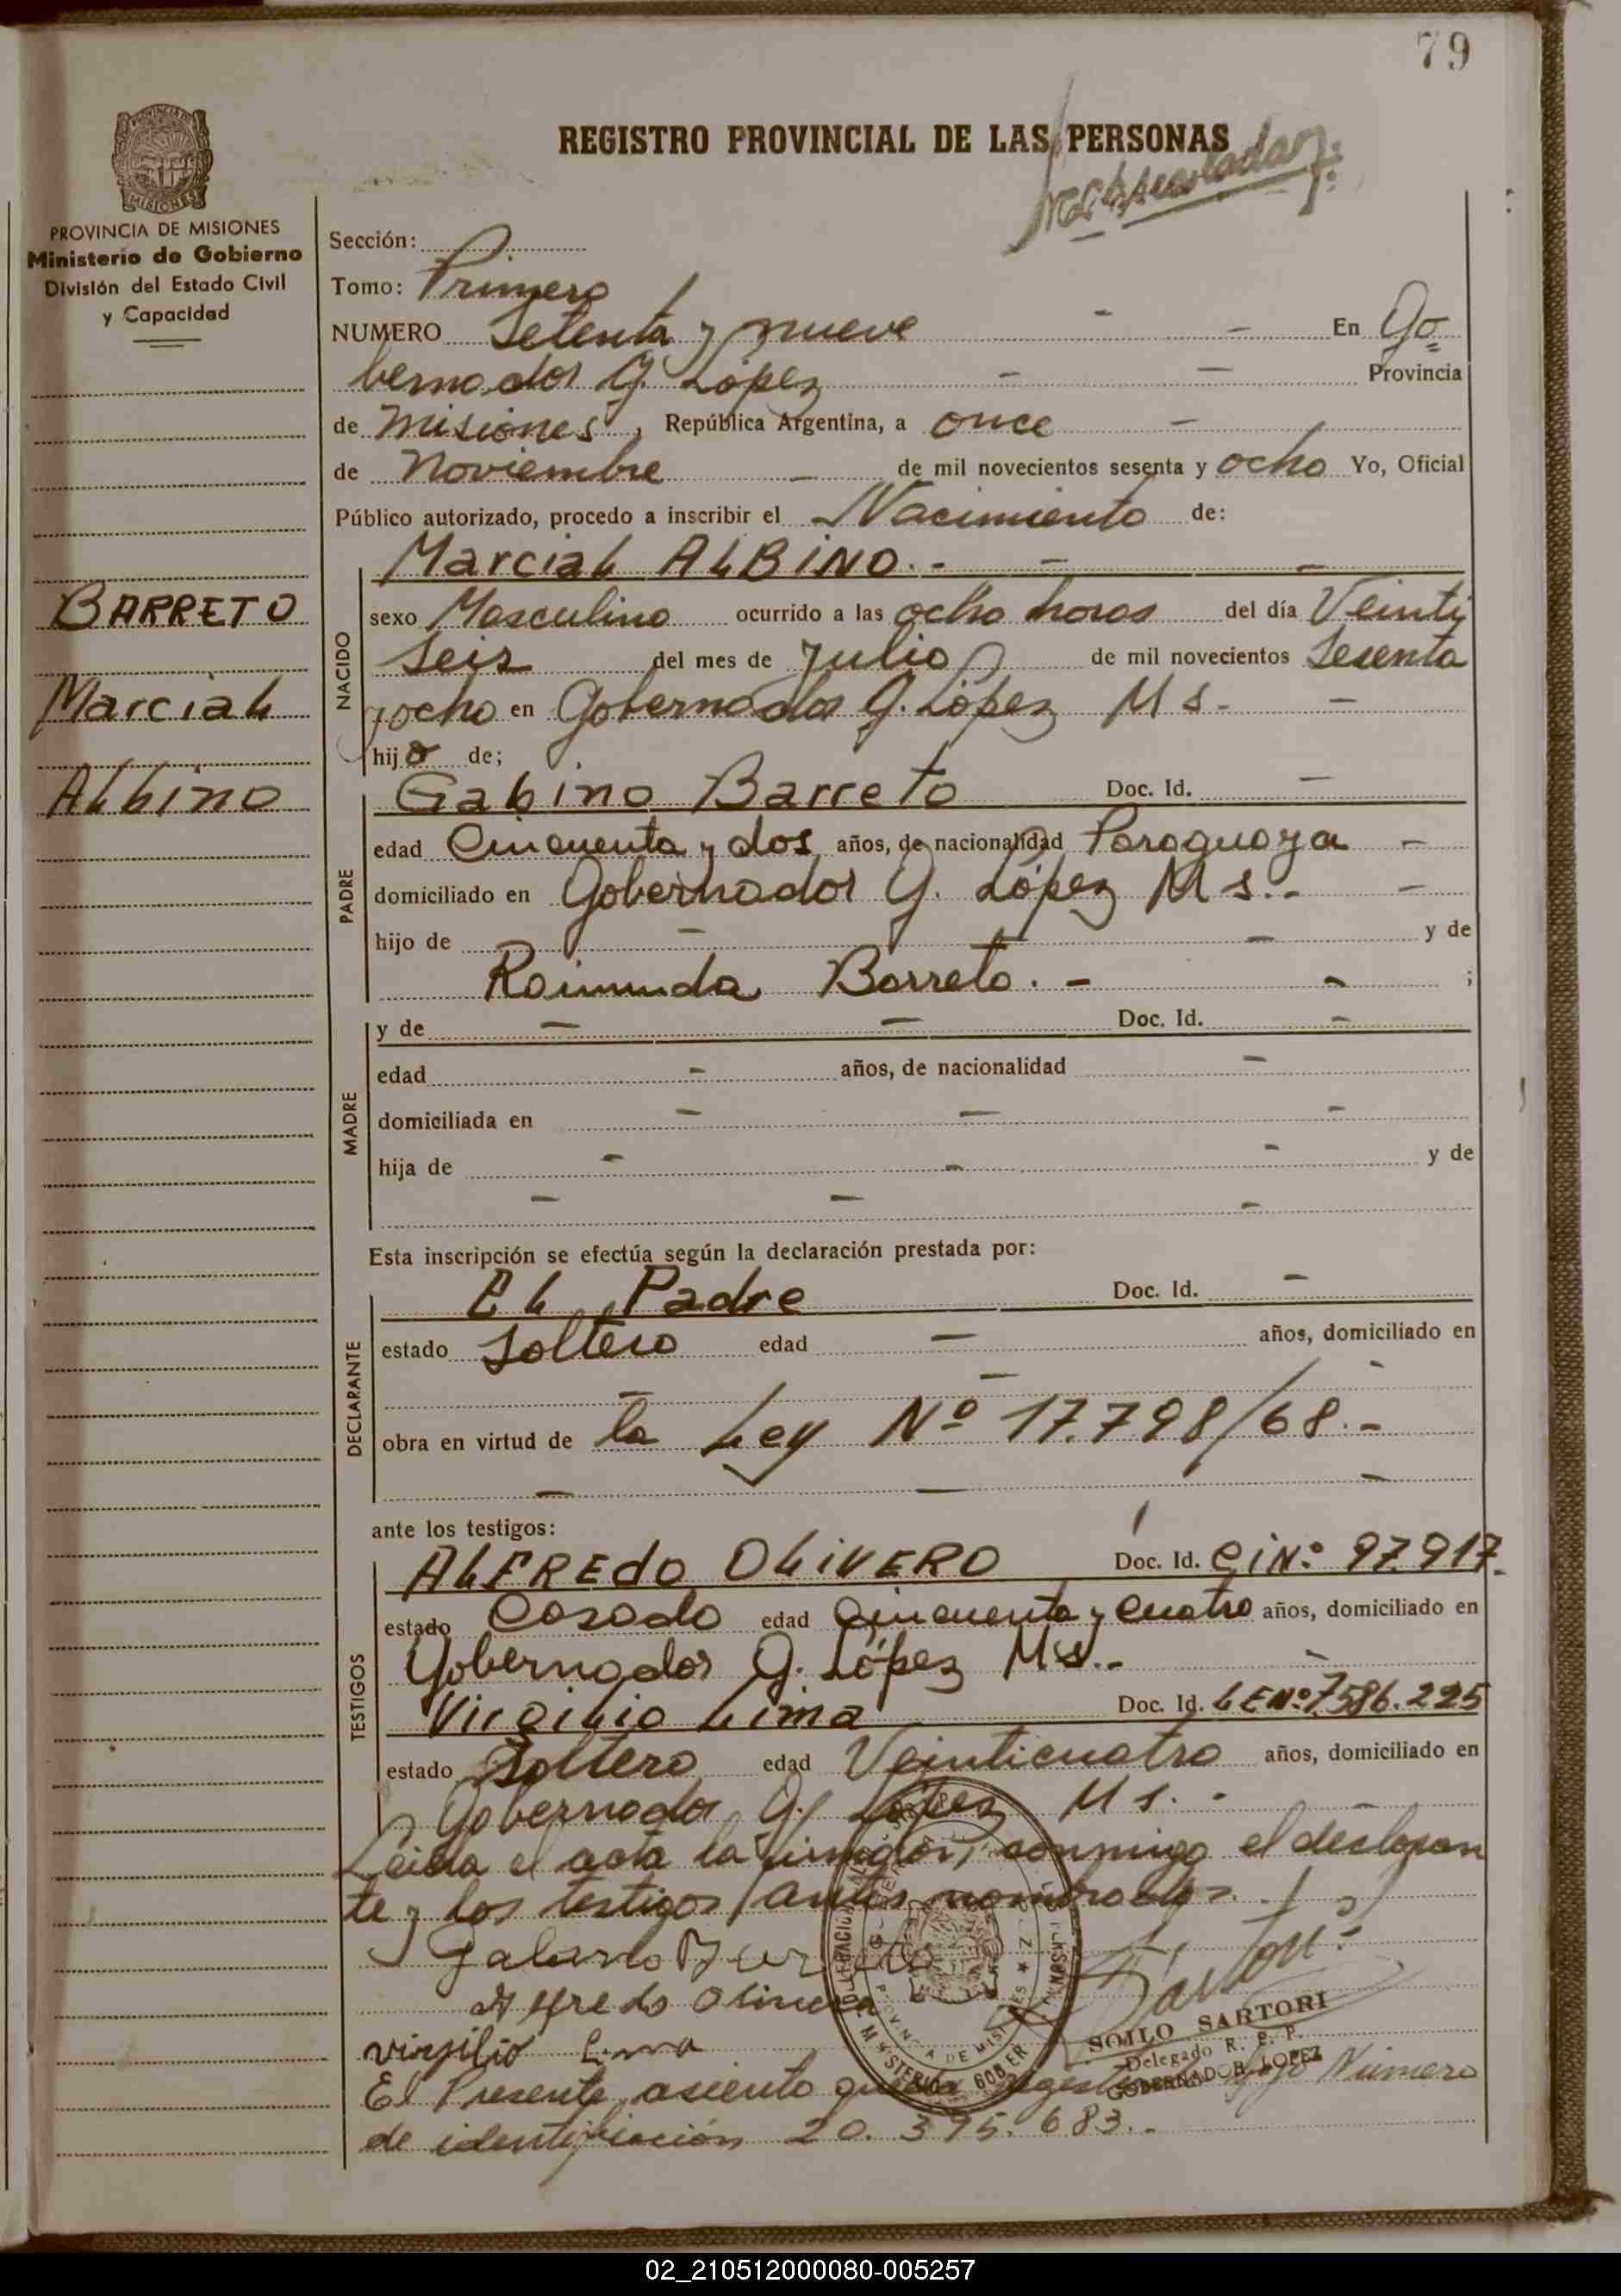 79
REGISTRO PROVINCIAL DE LAS PERSONAS
PROVINCIA DE MISIONES
Ministerio de Gobierno
División del Estado Civil
y Capacidad
Sección:
Tomo: Primero
NUMERO Setenta y nueve - - En Go
bernador G. López - - Provincia
de Misiones, República Argentina, a once -
de Noviembre - de mil novecientos sesenta y ocho Yo, Oficial
Público autorizado, procedo a inscribir el Nacimiento de:
BARRETO
Marcial
Albino
NACIDO
Marcial ALBINO.- - -
sexo Masculino ocurrido a las ocho horas del día Veinti
seis del mes de Julio de mil novecientos Sesenta
y ocho en Gobernador G. López Ms. -
hijo de;
PADRE
Gabino Barreto Doc. Id. -
edad Cincuenta y dos años, de nacionalidad Paraguaya -
domiciliado en Gobernador G. López Ms.- -
hijo de - - y de
Raimunda Barreto. - - ;
MADRE
y de - - Doc. Id. -
edad - años, de nacionalidad -
domiciliada en - - -
hija de - - - y de
- - -
Esta inscripción se efectúa según la declaración prestada por:
DECLARANTE
El Padre Doc. Id. -
estado Soltero edad - años, domiciliado en
- - -
obra en virtud de la Ley Nº 17.798/68.-
- - -
ante los testigos:
TESTIGOS
ALFREDO OLIVERO Doc. Id. CiNº 97.917.
estado Casado edad Cincuenta y cuatro años, domiciliado en
Gobernador G. López Ms.- -
Virgilio Lima Doc. Id. LENº 7586.225
estado Soltero edad Veinticuatro años, domiciliado en
Gobernador G. López Ms. -
Leida el acta la firman conmigo el declaran
te y los testigos antes nombrados.
Alfredo Olivera
virgilio Lima
SOILO SARTORI
Delegado R. P. P.
GOBERNADOR LOPEZ
PROVINCIA DE MISIONES
El Presente asiento Número
de identificación 20.395.683.-
02_210512000080-005257